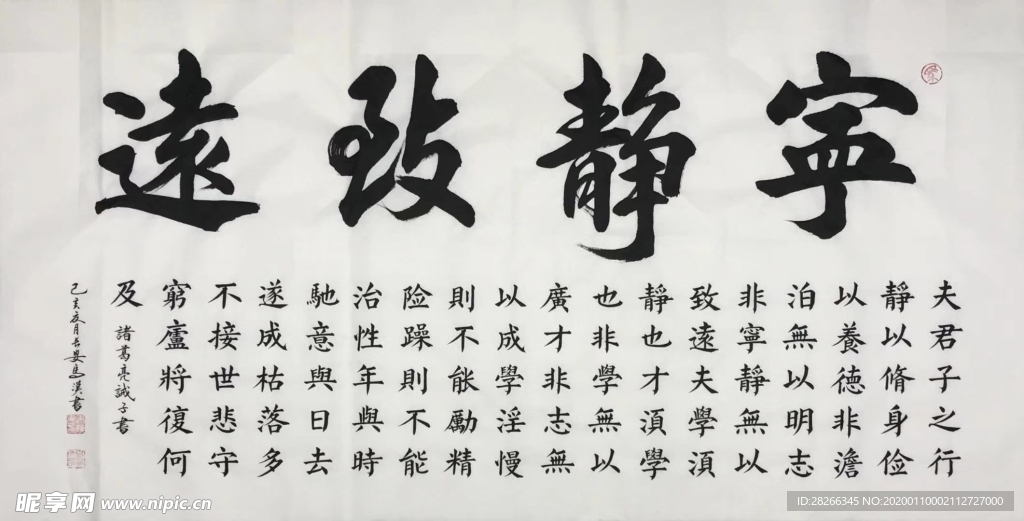 寧靜致遠
夫君子之行
靜以脩身儉
以養德非澹
泊無以明志
非寧靜無以
致遠夫學須
靜也才須學
也非學無以
廣才非志無
以成學淫慢
則不能勵精
险躁則不能
治性年與時
馳意與日去
遂成枯落多
不接世悲守
窮廬將復何
及
諸葛亮誡子書
己亥夏月
書
昵享网 www.nipic.cn
ID:28266345 NO:20200110002112727000